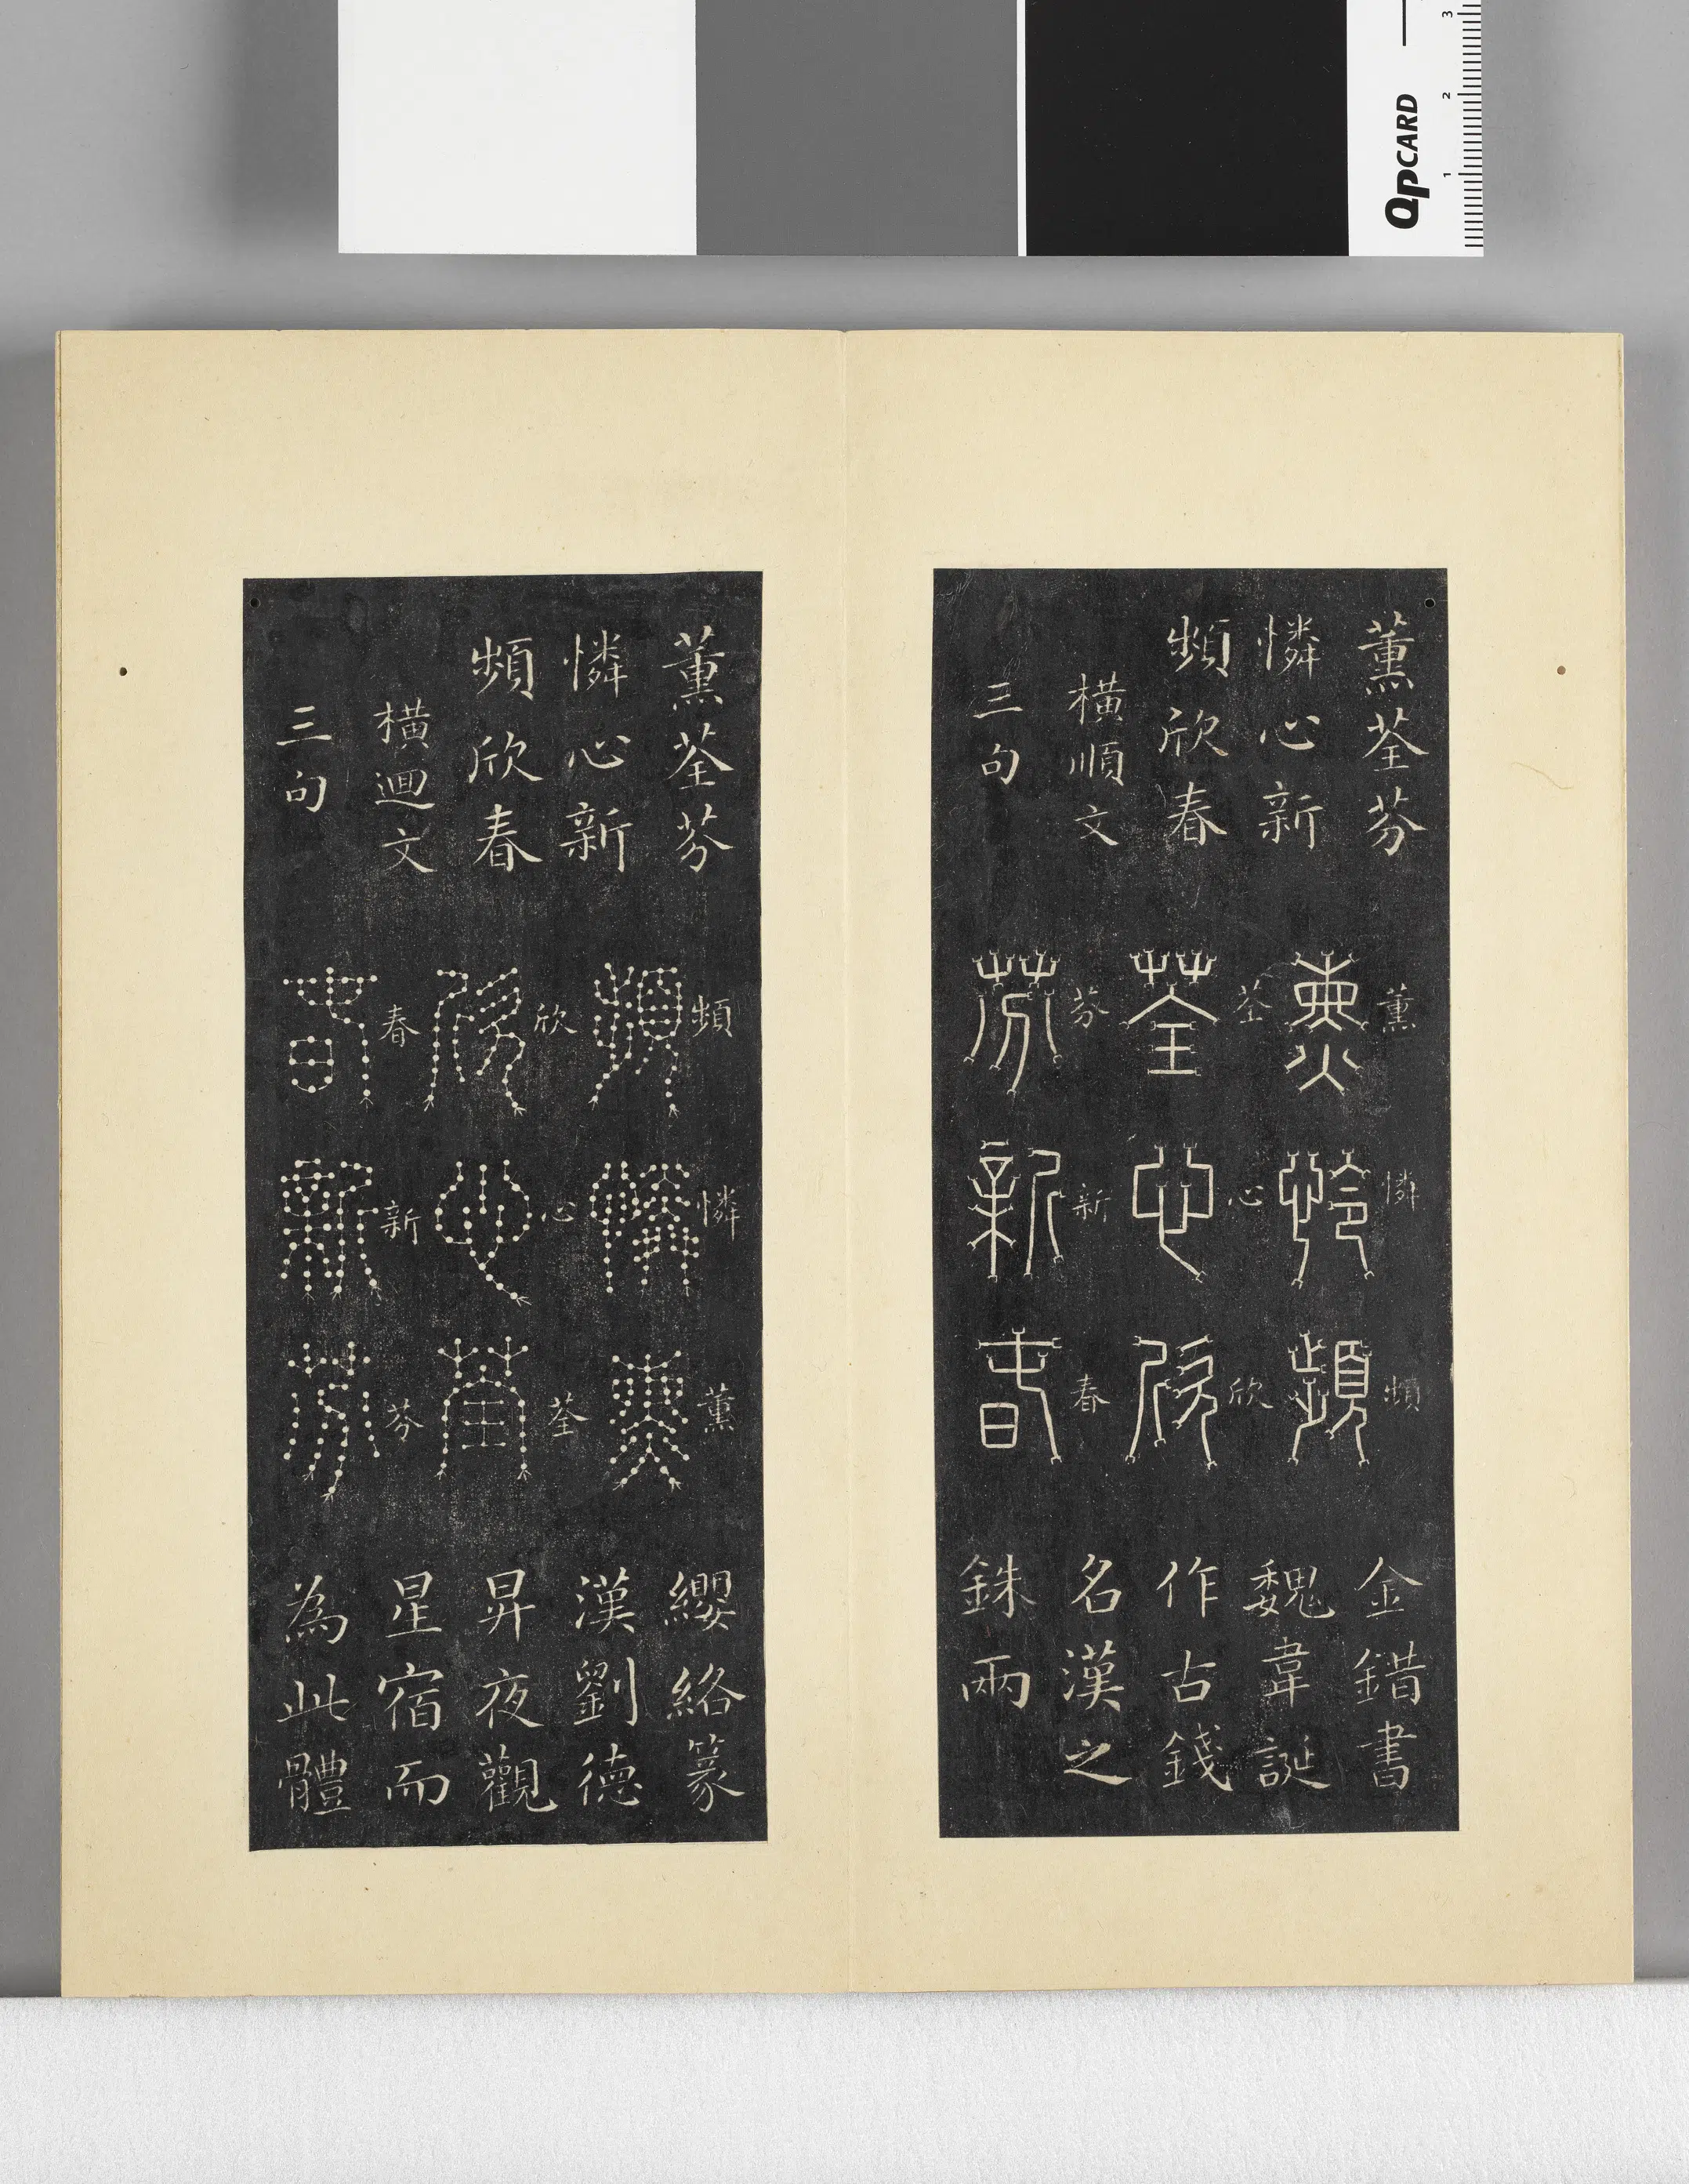 QPCARD
1 2 3
薰荃芬
憐心新
頻欣春
橫順文
三句
薰 荃 芬
憐 心 新
頻 欣 春
薰 荃 芬
憐 心 新
頻 欣 春
金錯書
魏韋誕
作古錢
名漢之
銖兩
薰荃芬
憐心新
頻欣春
橫迴文
三句
頻 欣 春
憐 心 新
薰 荃 芬
頻 欣 春
憐 心 新
薰 荃 芬
纓絡篆
漢劉德
昇夜觀
星宿而
為此體